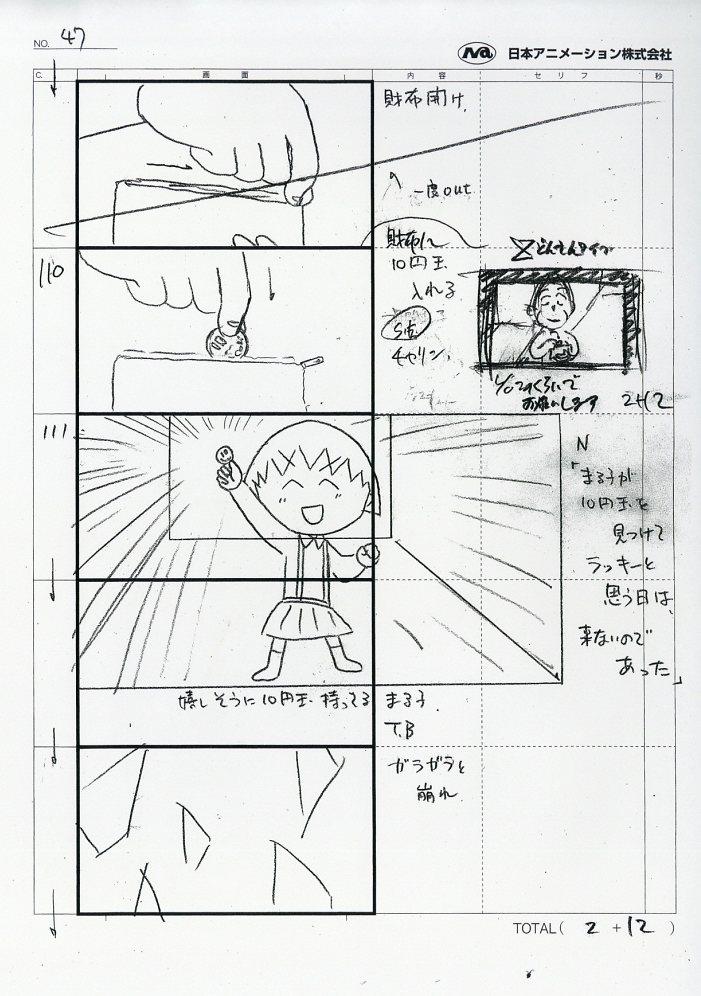 NO. 47
Na 日本アニメーション株式会社
C. 画面 内容 セリフ 秒
財布開け
一度out
110
財布に
10円玉
入れる
S.E.
チャリン
お願いします
2+12
111
N
「まる子が
10円玉を
見つけて
ラッキーと
思う日は、
来ないので
あった」
嬉しそうに10円玉持ってるまる子.
T.B
ガラガラと
崩れ
TOTAL( 2 +12 )